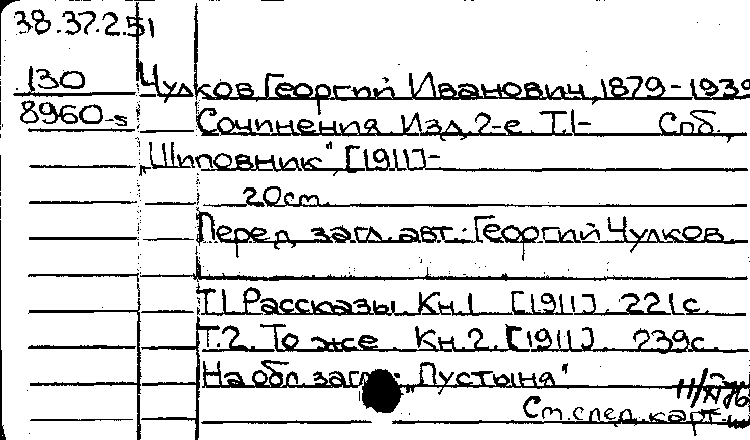 38.37.2.51
130 Чулков, Георгий Иванович, 1879-1939
8960-s Сочинения. Изд. 2-е. Т.1- Спб.,
„Шиповник", [1911]-
20cm.
Перед загл. авт.: Георгий Чулков
Т.1. Рассказы. Кн.1 [1911]. 221 с.
Т.2. То же. Кн.2. [1911]. 239с.
На обл. загл.: „Пустыня"
См. след. карт.